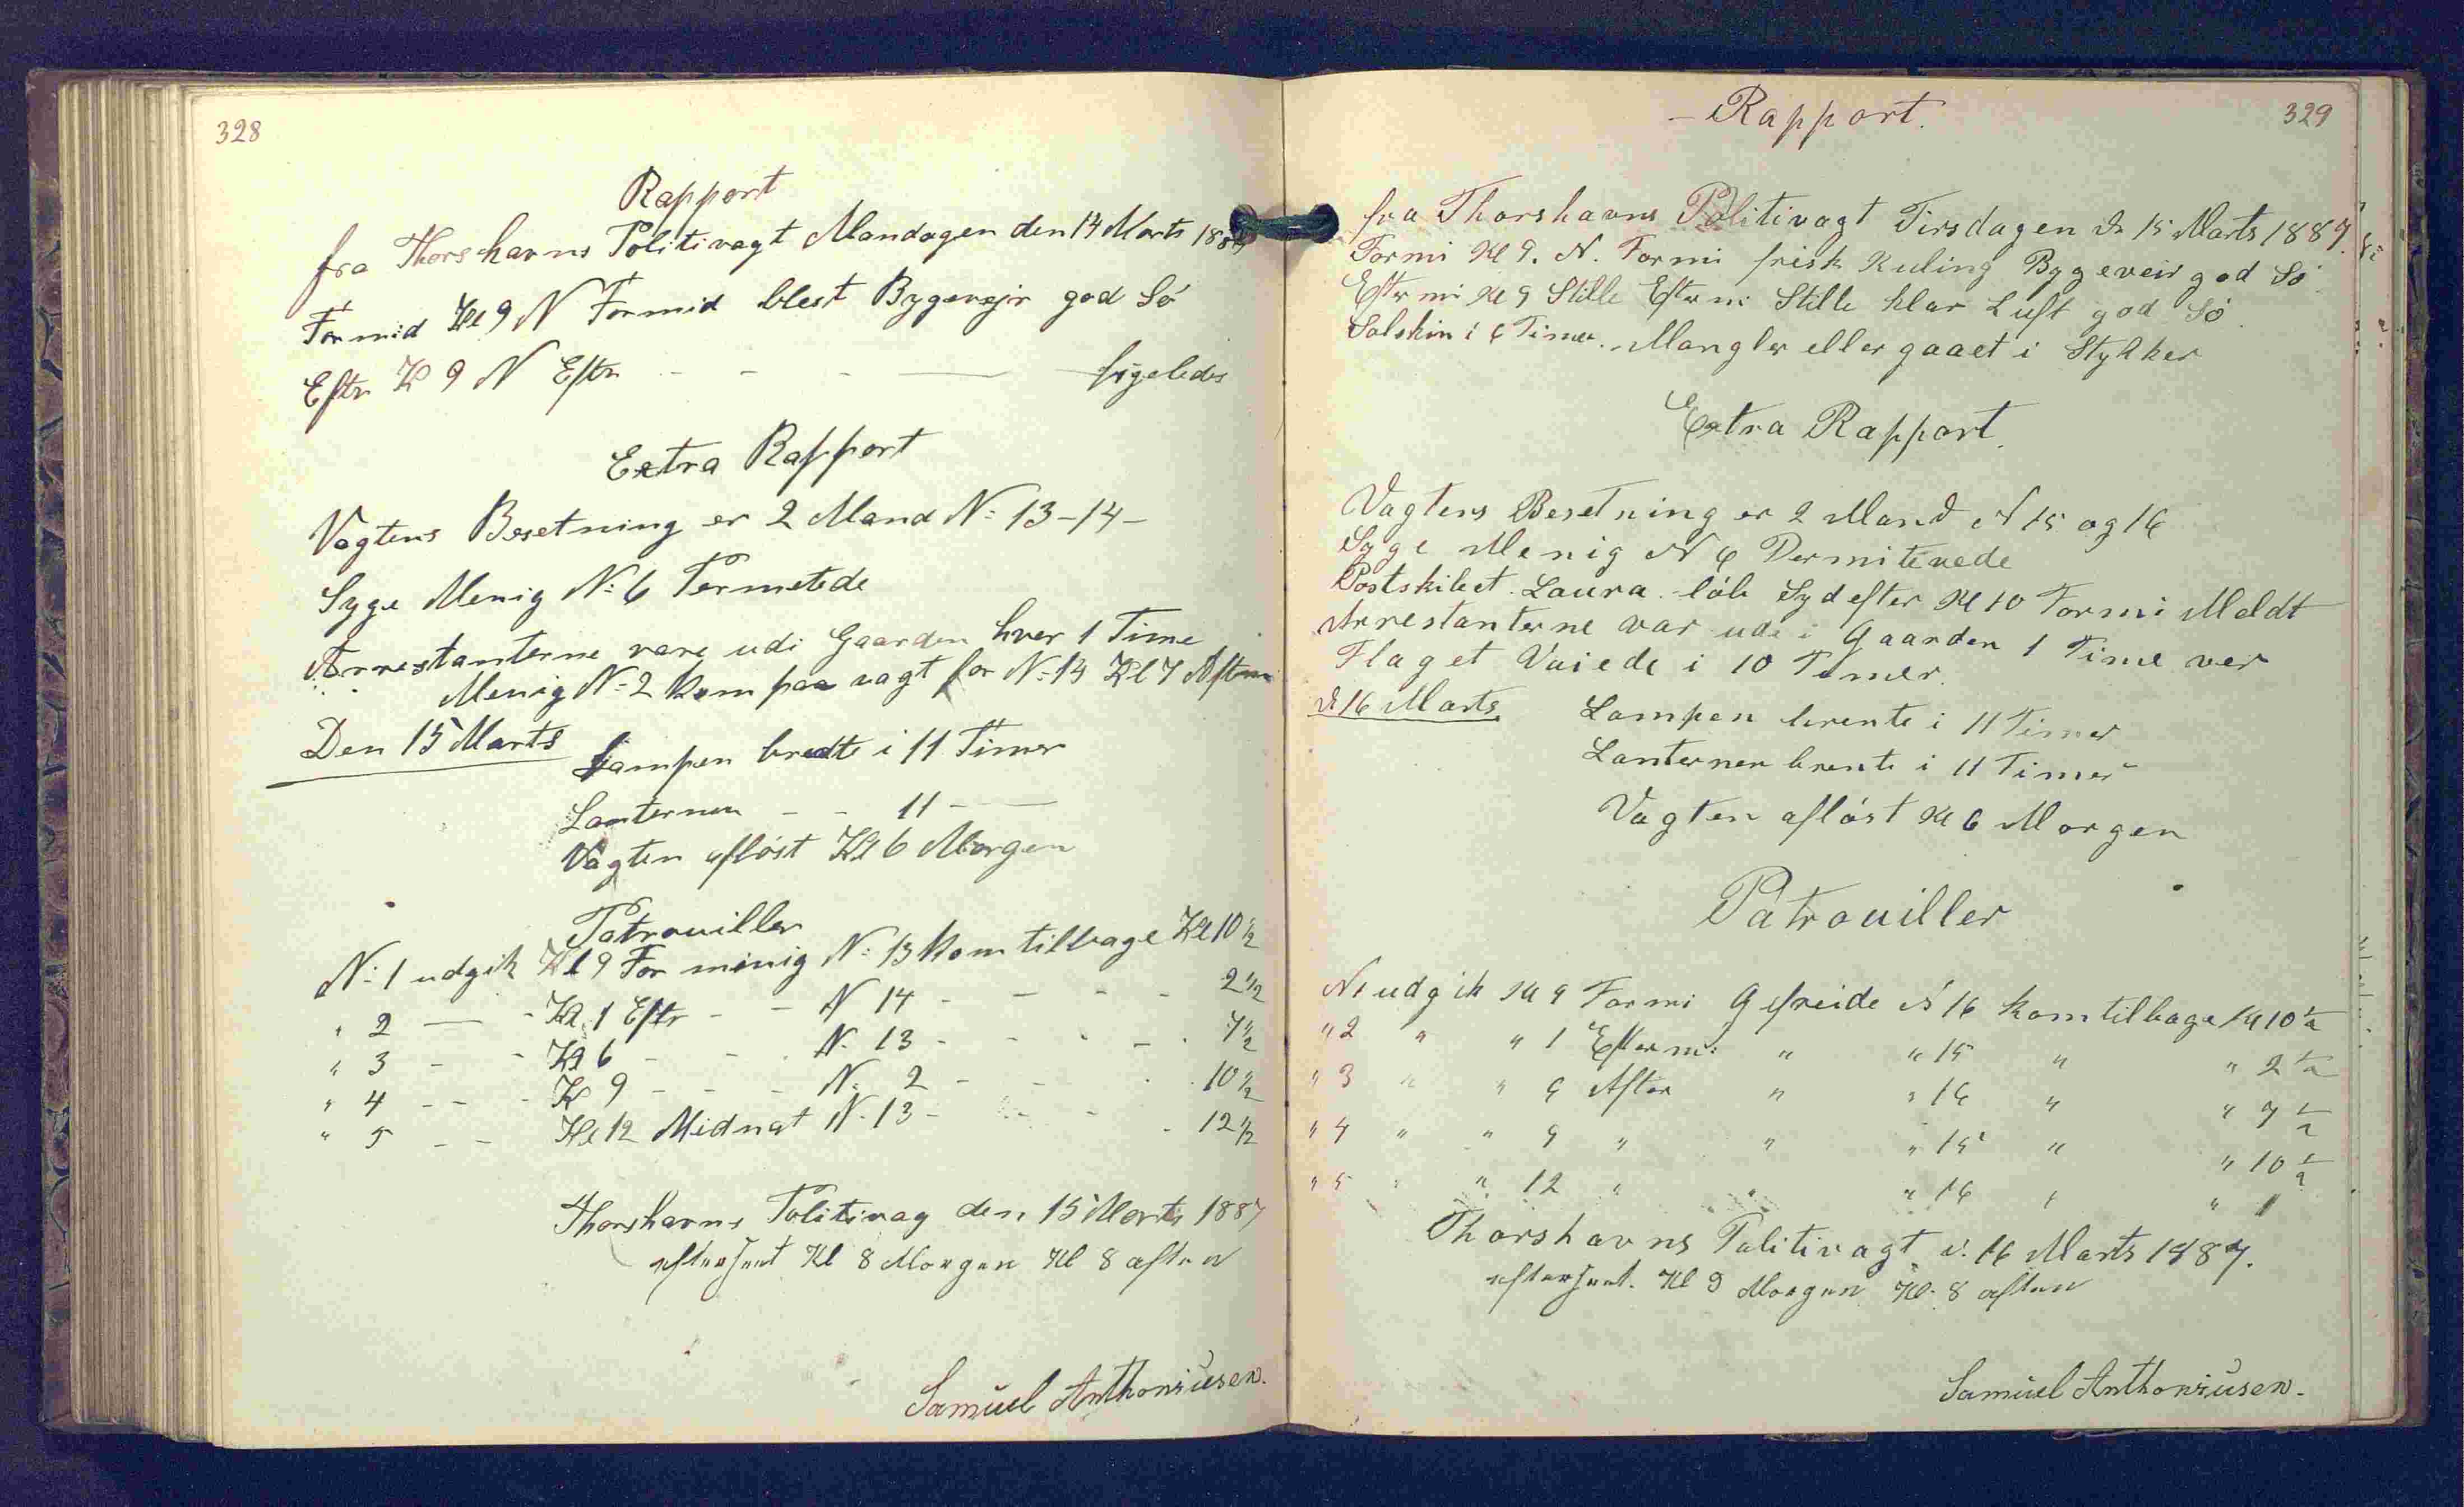 328
Rapport
fra Thorshavns Politivagt Mandagen den 14 Marts 1887
Formid Kl 9 N Formid blest Bygevejr god Sö
Eftr Kl 9 N Eftr - - - — ligeledes
Extra Rapport
Vagtens Besetning er 2 Mand N: 13-14-
Syge Menig N: 6 Permetede
Arrestanterne vare udi Gaarden hver 1 Time
Menig N: 2 kom paa vagt for N: 14 Kl 7 Aften
Den 15 Marts
Lampen bredte i 11 Timer
Lanternen - - 11 -
Vagten aflöst Kl 6 Morgen
Patrouiller
N: 1 udgik Kl 9 For menig N: 13 kom tilbage Kl 10 1/2
" 2 — - Kl 1 Eftr - - N 14 - - - - 2 1/2
" 3 - - Kl 6 - - - N. 13 - - - - 7 1/2
" 4 - - - Kl 9 - - - N: 2 - - - 10 1/2
" 5 - - Kl 12 Midnat N. 13 - - - - 12 1/2
Thorshavns Politivag den 15 Marts 1887
efterseet Kl 8 Morgen Kl 8 aften
Samuel Anthoniusen.
329
- Rapport.
fra Thorshavns Politivagt Tirsdagen d. 15 Marts 1887.
Formi Kl 9. N. Formi frisk Kuling Bygeveir god Sö
Efterm Kl 9 Stille Efterm: Stille klar Luft god Sö
Solskin i 6 Timer. Mangler eller gaaet i Stykker
Extra Rapport.
Vagtens Besetning er 2 Mand N 15 og 16
Syge Menig N 6 Permiterede
Postskibet Laura löb Syd efter Kl 10 Formi Meldt
Arrestanterne var ude i Gaarden 1 Time ver
Flaget Vaiede i 10 Timer.
d. 16 Marts
Lampen brente i 11 Timer
Lanternen brente i 11 Timer
Vagten aflöst Kl 6 Morgen
Patrouiller
N 1 udgik Kl 9 Formi Gefreide N 16 kom tilbage Kl 10 1/2
" 2 " " 1 Efterm: " " 15 " " 2 1/2
" 3 " " 6 Aften " " 16 " " 7 1/2
" 4 " " 9 " " " 15 " " 10 1/2
" 5 " " 12 " " " 16 " " 1
Thorshavns Politivagt d. 16 Marts 1887.
efterseet. Kl 9 Morgen Kl. 8 aften
Samuel Anthoniusen.